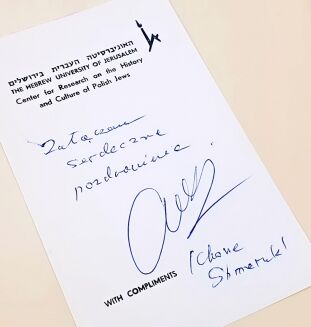 האוניברסיטה העברית בירושלים
THE HEBREW UNIVERSITY OF JERUSALEM
Center for Research on the History
and Culture of Polish Jews
Załączam
serdeczne
pozdrowienia.
/Chone
Shmeruk/
WITH COMPLIMENTS